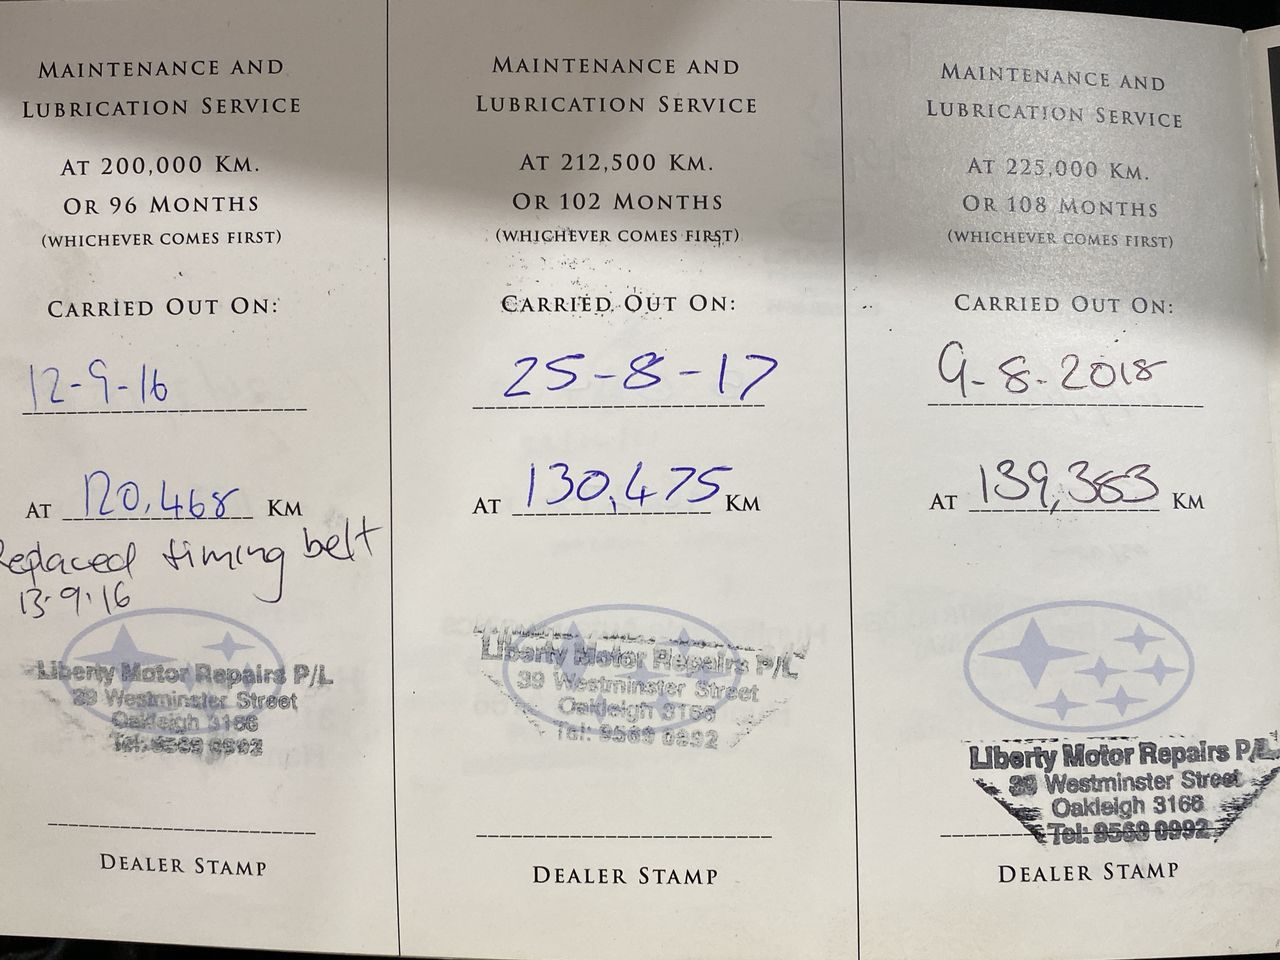 MAINTENANCE AND
LUBRICATION SERVICE
AT 200,000 KM.
OR 96 MONTHS
(WHICHEVER COMES FIRST)
CARRIED OUT ON:
12-9-16
AT 120,468 KM
Replaced timing belt
13.9.16
Liberty Motor Repairs P/L
39 Westminster Street
Oakleigh 3166
Tel: 9569 0992
DEALER STAMP
MAINTENANCE AND
LUBRICATION SERVICE
AT 212,500 KM.
OR 102 MONTHS
(WHICHEVER COMES FIRST)
CARRIED OUT ON:
25-8-17
AT 130,475 KM
Liberty Motor Repairs P/L
39 Westminster Street
Oakleigh 3166
Tel: 9569 0992
DEALER STAMP
MAINTENANCE AND
LUBRICATION SERVICE
AT 225,000 KM.
OR 108 MONTHS
(WHICHEVER COMES FIRST)
CARRIED OUT ON:
9-8-2018
AT 139,383 KM
Liberty Motor Repairs P/L
39 Westminster Street
Oakleigh 3166
Tel: 9569 0992
DEALER STAMP